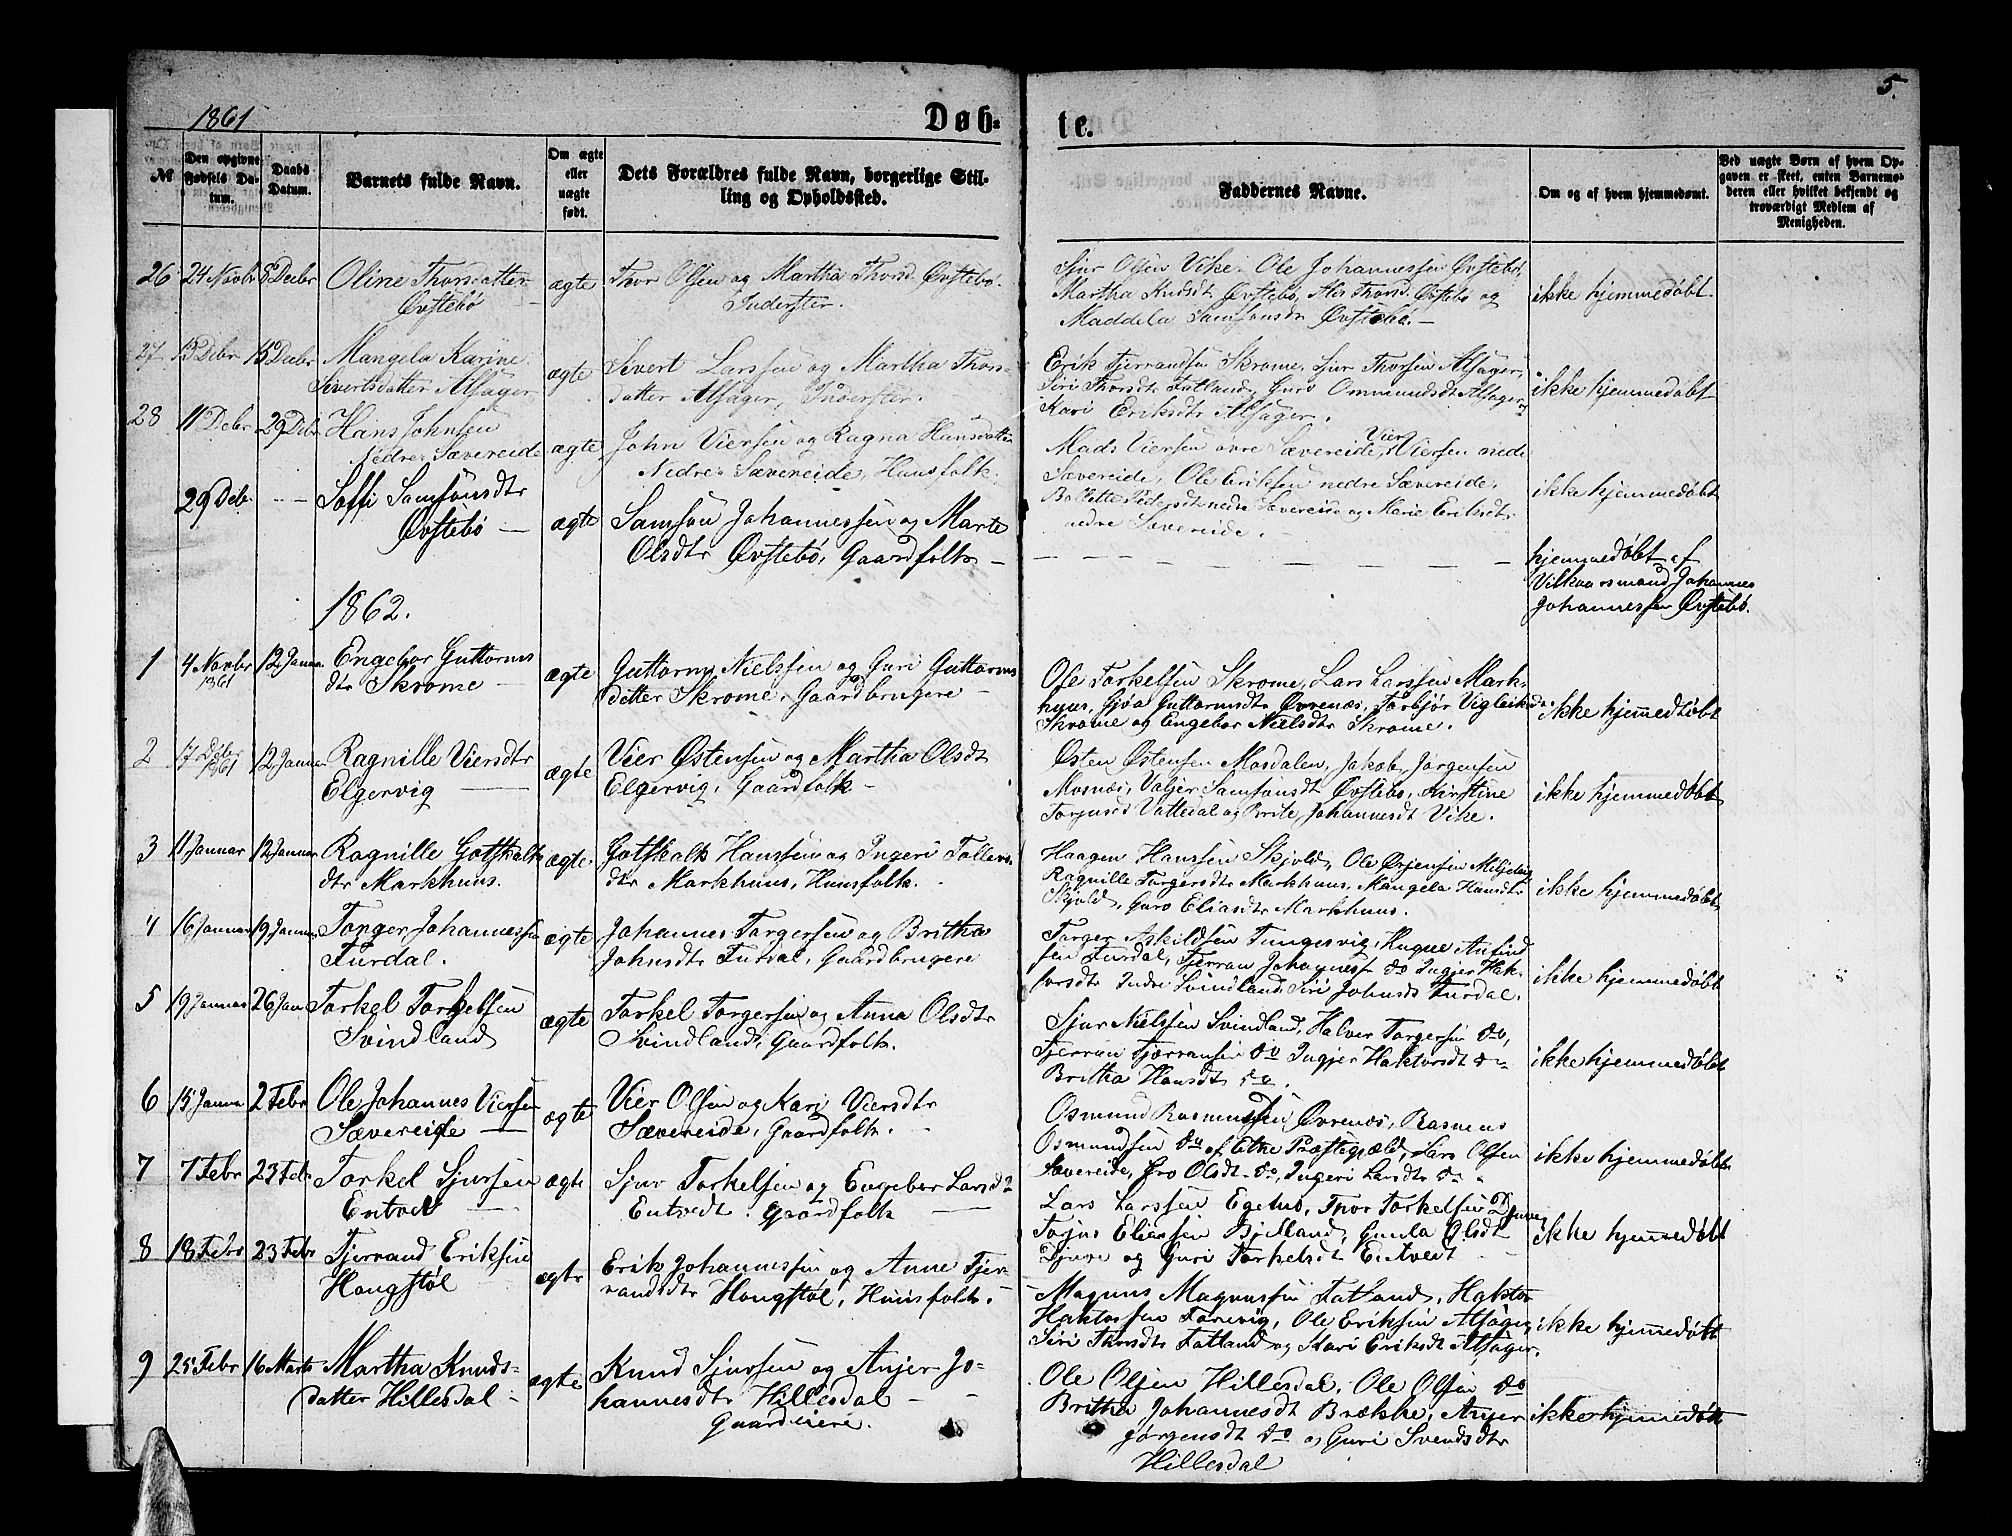 1861
Døb-
te.
5.
№
Den opgivne Fødsels Da-tum.
Daabs Datum.
Barnets fulde Navn.
Om ægte eller uægte født.
Dets Forældres fulde Navn, borgerlige Stil-
ling og Opholdssted.
Faddernes Navne.
Om og af hvem hjemmedømt.
Ved uægte Børn af hvem Op-
gaven er skeet, enten Barnemo-
deren eller hvilket bekjendt og
troværdigt Medlem af
Menigheden.
26 24 Novbr 8 Decbr Oline Thorsdatter
Øvstebø
ægte
Thor Olsen og Martha Thorsd. Øvstebø.
Inderster.
Sjur Olsen Vike, Ole Johannessen Øvstebø,
Martha Knudsdt Øvstebø, Thorsd. Øvstebø og
Maddela Samsonsdtr Øvstebø. —
ikke hjemmedøbt
27 13 Debr 15 Decbr Mangela Karine
Sivertsdatter Alsager
ægte
Sivert Larssen og Martha Thors-
datter Alsager, Inderster.
Erik Tjerrandsen Skrome, Sjur Thorsen Alsager,
Siri Thorsdt Fatland, Guro Ommundsdt Alsager og
Kari Eriksdtr Alsager.
ikke hjemmedøbt
28 11 Debr 29 Debr Hans Johnsen
Nedre Sævereide
ægte
John Viersen og Ragna Hansdatter
Nedre Sævereide, Huusfolk.
Mads Viersen øvre Sævereide, Vier Viersen nedre
Sævereide, Ole Eriksen nedre Sævereide,
Bollette Pedersdt nedre Sævereide og Marie Eriksdtr
nedre Sævereide. —
ikke hjemmedøbt
29 Deb. — — Soffi Samsonsdtr
Øvstebø —
ægte
Samson Johannessen og Marte
Olsdtr Øvstebø, Gaardfolk —
— — — — — — — —
hjemmedøbt af
Vilkaarsmand Johannes
Johannessen Øvstebø.
1862.
1 4 Novbr 1861 12 Januar Engebor Guttorms
dtr Skrome —
ægte
Guttorm Nielssen og Guri Guttorms
datter Skrome, Gaardbrugere —
Ole Torkelsen Skrome, Lars Larssen Mark-
huus, Gjøa Guttormsdtr Øvrenæs, Torbjør Vigleiksdr
Skrome og Engebor Nielsdtr Skrome.
ikke hjemmedøbt
2 17 Dcbr 1861 12 Januar Ragnille Viersdtr
Elgervig —
ægte
Vier Østensen og Martha Olsdt
Elgervig, Gaardfolk —
Østen Østensen Mosdalen, Jakob Jørgensen
Mosnæs, Valjer Samsonsdt Øvstebø, Kirstine
Torjusd Vattedal og Brite Johannesdt Vike.
ikke hjemmedøbt
3 11 Januar 12 Januar Ragnille Gotskalks
dtr Markhuus.
ægte
Gotskalk Hanssen og Ingeri Tollevs
dtr Markhuus, Huusfolk.
Haagen Hanssen Skjold, Ole Ørjensen Miljeteig
Ragnille Torgersdtr Markhuus, Mangela Hansdtr
Skjold, Guro Eliasdtr Markhuus.
ikke hjemmedøbt
4 16 Januar 19 Januar Torger Johannessen
Furdal.
ægte
Johannes Torgersen og Britha
Johnsdtr Furdal, Gaardbrugere
Torger Askildsen Tungesvig, Haque Anfind
sen Furdal, Tjerran Johannessn do Ingjer Hak-
torsdtr Indre Svindland, Siri Johnsdt Furdal.
ikke hjemmedøbt
5 19 Januar 26 Jan Torkel Torkelsen
Svindland
ægte
Torkel Torgersen og Anna Olsdtr
Svindland, Gaardfolk.
Sjur Nielssen Svindland, Halver Torgersen do,
Tjerran Tjerransen do Ingjer Haktorsdt do
Britha Hansdt do.
ikke hjemmedøbt
6 15 Januar 2 Febr Ole Johannes Viersen
Sævereide —
ægte
Vier Olsen og Kari Viersdtr
Sævereide, Gaardfolk. —
Osmund Rasmussen Øvrenæs, Rasmus
Osmundsen do af Etne Præstegjæld, Lars Olsen
Sævereide, Gro Olsdt do, Ingeri Larsdt do.
ikke hjemmedøbt
7 7 Febr 23 Febr Torkel Sjursen
Entvet —
ægte
Sjur Torkelsen og Engeber Larsd
Entvedt, Gaardfolk —
Lars Larssen Egenes, Thor Torkelsen Djuve,
Torjus Eliassen Bjelland, Gunla Olsdt
Djuve og Guri Torkelsdt Entvedt
ikke hjemmedøbt
8 18 Febr 23 Febr Tjerrand Eriksen
Hongstøl
ægte
Erik Johannessen og Anne Tjer-
randsdtr Hongstøl, Huusfolk.
Magnus Magnussen Fatland, Haktor
Haktorsen Torevig, Ole Eriksen Alsager,
Siri Thorsdt Fatland og Kari Eriksdt Alsager.
ikke hjemmedøbt
9 25 Febr 16 Marts Martha Knuds-
datter Hillesdal —
ægte
Knud Sjursen og Anjer Jo-
hannesdtr Hillesdal —
Gaardeiere.
Ole Olsen Hillesdal, Ole Olsen do
Britha Johannesdt Brække, Anjer
Jørgensdt do og Guri Svendsdtr
Hillesdal
ikke hjemmedøbt